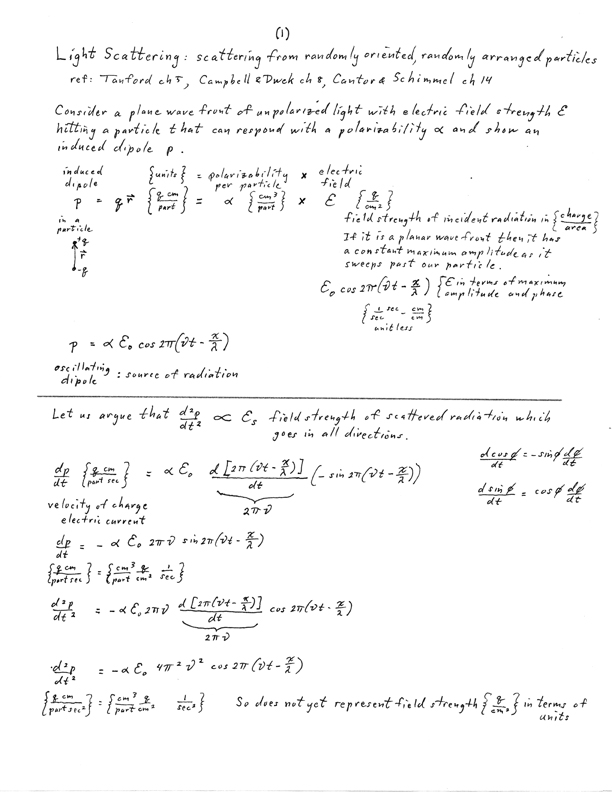 (1)
Light Scattering: scattering from randomly oriented, randomly arranged particles
ref: Tanford ch 5, Campbell & Dwek ch 8, Cantor & Schimmel ch 14
Consider a plane wave front of unpolarized light with electric field strength ℰ
hitting a particle that can respond with a polarizability α and show an
induced dipole p.
induced dipole {units} = polarizability per particle × electric field
p = q r⃗ {q cm / part} = α {cm³ / part} × ℰ {q / cm²}
in a particle
+q
r⃗
-q
field strength of incident radiation in {charge / area}
If it is a planar wave front then it has
a constant maximum amplitude as it
sweeps past our particle.
ℰ₀ cos 2π(νt - x/λ) {ℰ in terms of maximum amplitude and phase
{1/sec sec - cm/cm}
unitless
p = α ℰ₀ cos 2π(νt - x/λ)
oscillating dipole : source of radiation
Let us argue that d²p/dt² ∝ ℰₛ field strength of scattered radiation which
goes in all directions.
d cos ø/dt = - sin ø dø/dt
dp/dt {q cm / part sec} = α ℰ₀ d[2π(νt - x/λ)]/dt (- sin 2π(νt - x/λ))
d sin ø/dt = cos ø dø/dt
2πν
velocity of charge
electric current
dp/dt = - α ℰ₀ 2πν sin 2π(νt - x/λ)
{q cm / part sec} = {cm³/part q/cm² 1/sec}
d²p/dt² = - α ℰ₀ 2πν d[2π(νt - x/λ)]/dt cos 2π(νt - x/λ)
2πν
d²p/dt² = - α ℰ₀ 4π² ν² cos 2π(νt - x/λ)
{q cm / part sec²} = {cm³/part q/cm² 1/sec²} So does not yet represent field strength {q/cm²} in terms of
units